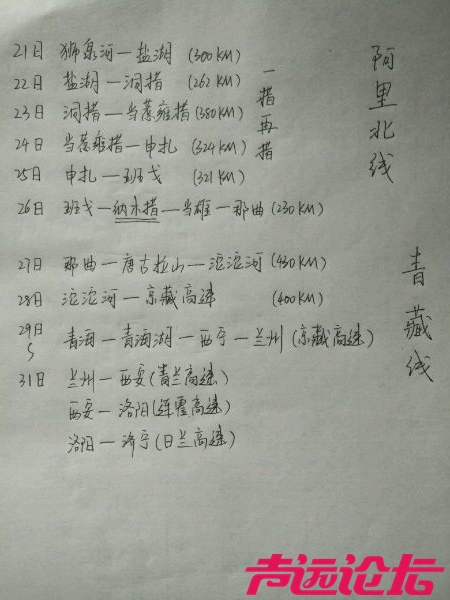 21日 狮泉河—盐湖 (300KM)
22日 盐湖—洞措 (262KM)
23日 洞措—当惹雍措(380KM)
24日 当惹雍措—申扎 (324KM)
25日 申扎—班戈 (321KM)
26日 班戈—纳木措—当雄—那曲(230KM)
一措再措
阿里北线
27日 那曲—唐古拉山—沱沱河(430KM)
28日 沱沱河—京藏高速 (400KM)
29日 青海—青海湖—西宁—兰州(京藏高速)
31日 兰州—西安(青兰高速)
西安—洛阳(连霍高速)
洛阳—济宁(日兰高速)
青藏线
声远论坛